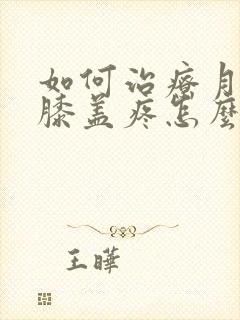 如何治療月
膝盖疼怎麼
王曄